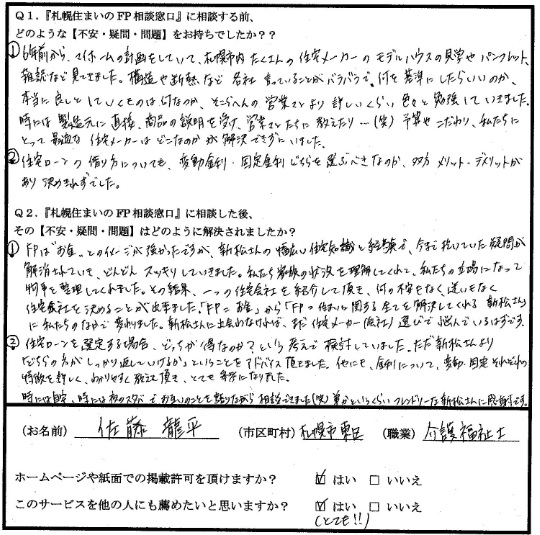 Q1.『札幌住まいのFP相談窓口』に相談する前、
どのような【不安・疑問・問題】をお持ちでしたか？？
① 6年前から、マイホームの計画をしていて、札幌市内たくさんの住宅メーカーのモデルハウスの見学やパンフレット、
雑誌など見てきました。構造や断熱など各社言っていることがバラバラで、何を基準にしたらいいのか、
本当に良しとしていくものは何なのか、そこらへんの営業さんより詳しいくらい色々と勉強していきました。
時には製造元に直接、商品の説明を受け、営業さんたちに教えたり…(笑) 予算やこだわり、私たちに
とって最適な住宅メーカーはどこなのかが解決できずにいました。
② 住宅ローンの借り方についても、変動金利・固定金利どちらを選ぶべきなのか、双方メリット・デメリットが
あり決めきれずでした。
Q2.『札幌住まいのFP相談窓口』に相談した後、
その【不安・疑問・問題】はどのように解決されましたか？
① FPは"お金"とのイメージが強かったですが、新松さんの幅広い住宅知識と経験で、今まで抱いていた疑問が
解消されていき、どんどんスッキリしていきました。私たち家族の状況を理解してくれて、私たちの立場になって
物事を整理してくれました。その結果、一つの住宅会社を紹介して頂き、何の不安もなく、迷いもなく
住宅会社を決めることが出来ました。「FP＝お金」から「FP＝住まいに関する全てを解決してくれる新松さん」
に私たちのなかで変わりました。新松さんに出会わなければ、まだ住宅メーカー(会社)選びで悩んでいるはずです。
② 住宅ローンを選定する場合、どっちが得なのか？という考えで検討していました。ただ新松さんより
「どちらの方がしっかり返していけるか」ということをアドバイス頂きました。他にも、金利について、変動・固定それぞれの
特徴を詳しく、わかりやすく教えて頂き、とても参考になりました。
時には自宅、時には夜のスタバでお互いのことを語りながら相談できました(笑)
(お名前) 佐藤 龍平 (市区町村) 札幌市東区 (職業) 介護福祉士
ホームページや紙面での掲載許可を頂けますか？ ☑ はい □ いいえ
このサービスを他の人にも薦めたいと思いますか？ ☑ はい □ いいえ
(とても!!)